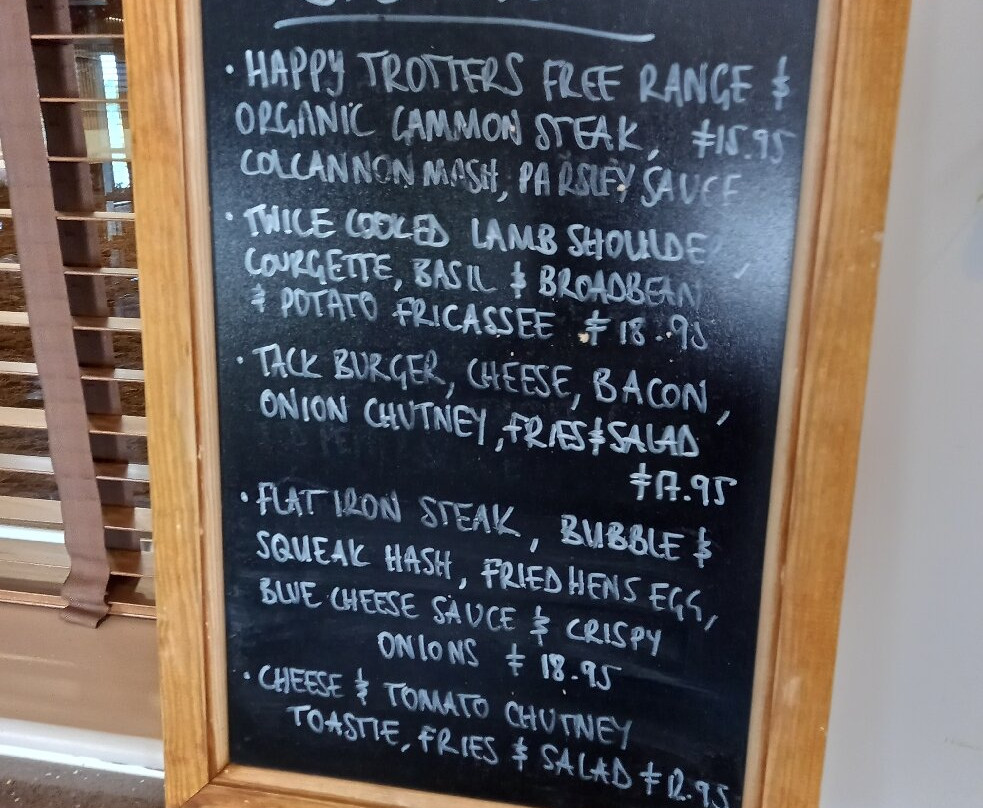 · HAPPY TROTTERS FREE RANGE &
ORGANIC GAMMON STEAK, £15.95
COLCANNON MASH, PARSLEY SAUCE
· TWICE COOKED LAMB SHOULDE
COURGETTE, BASIL & BROADBEAN
& POTATO FRICASSEE £18.95
· TACK BURGER, CHEESE, BACON,
ONION CHUTNEY, FRIES & SALAD
£17.95
· FLAT IRON STEAK, BUBBLE &
SQUEAK HASH, FRIED HENS EGG,
BLUE CHEESE SAUCE & CRISPY
ONIONS £18.95
· CHEESE & TOMATO CHUTNEY
TOASTIE, FRIES & SALAD £12.95